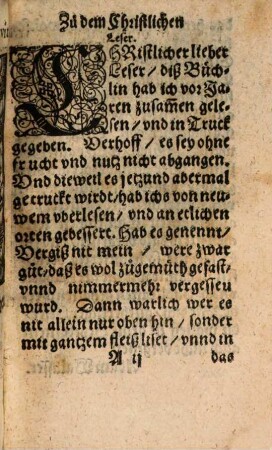 Zů dem Christlichen
Leser.
CHRistlicher lieber
Leser / diß Büch-
lin hab ich vor Ja-
ren zusam̃en gele-
sen / vnd in Truck
gegeben. Verhoff / es sey ohne
frucht vnd nutz nicht abgangen.
Vnd dieweil es jetzund abermal
getruckt wirdt / hab ichs von neu-
wem vberlesen / vnd an etlichen
orten gebessert. Hab es genennt /
Vergiß nit mein / were zwar
gůt / daß es wol zůgemüth gefast /
vnnd nimmermehr vergessen
wurd. Dann warlich wer es
nit allein nur oben hin / sonder
mit gantzem fleiß liset / vnnd in
A ij das